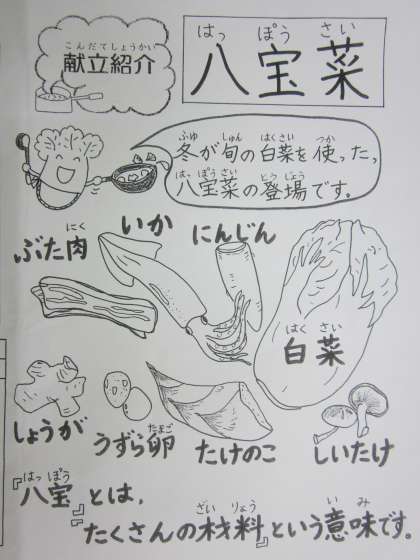 こんだてしょうかい
献立紹介
はっぽうさい
八宝菜
ふゆ しゅん はくさい つか
冬が旬の白菜を使った、
はっぽうさい とうじょう
八宝菜の登場です。
にく
ぶた肉
いか
にんじん
はくさい
白菜
しょうが
たまご
うずら卵
たけのこ
しいたけ
はっぽう
『八宝』とは、
ざいりょう いみ
たくさんの材料という意味です。